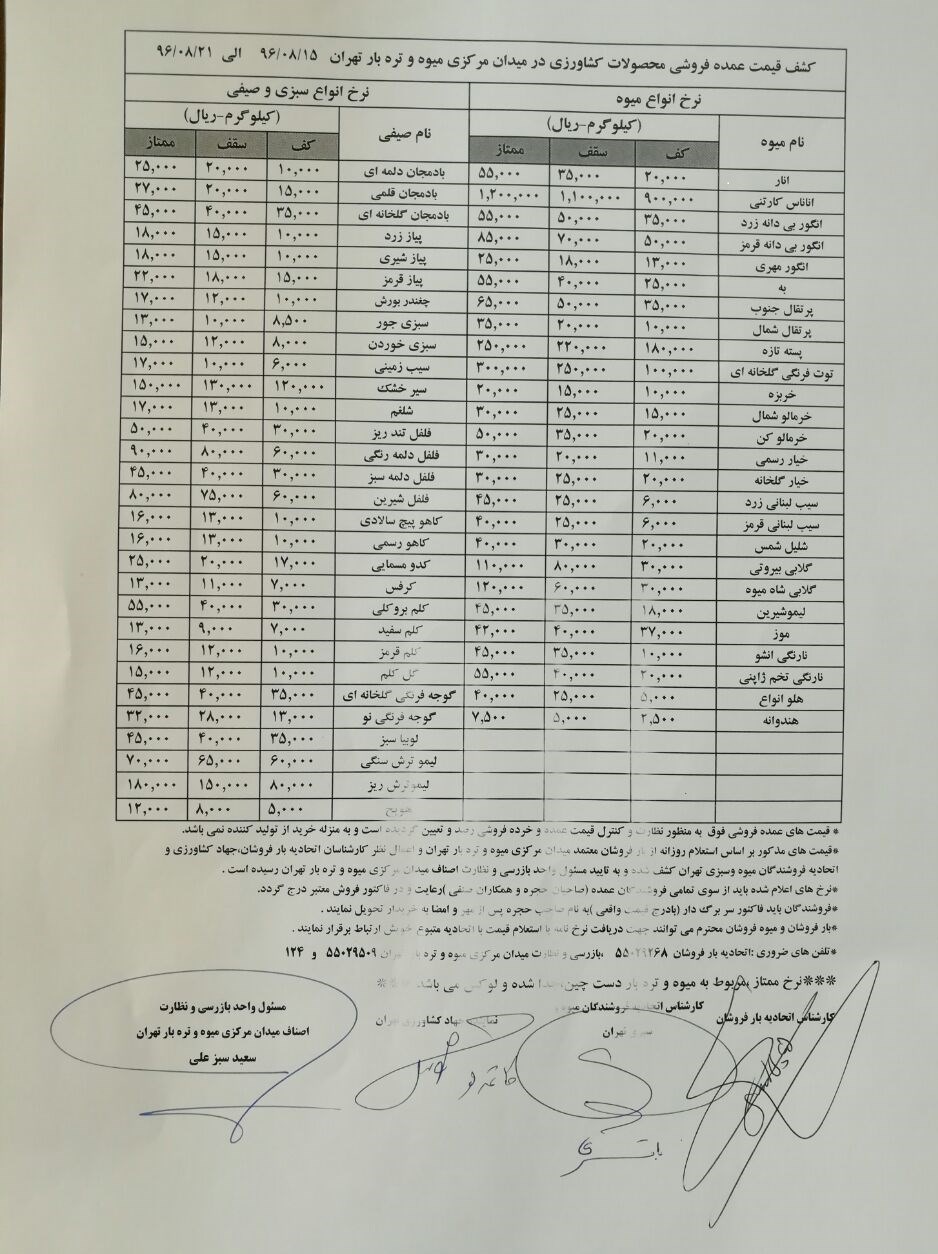 کشف قیمت عمده فروشی محصولات کشاورزی در میدان مرکزی میوه و تره بار تهران ۹۶/۰۸/۱۵ الی ۹۶/۰۸/۲۱
نرخ انواع میوه
نرخ انواع سبزی و صیفی
نام میوه (کیلوگرم-ریال) نام صیفی (کیلوگرم-ریال)
کف سقف ممتاز کف سقف ممتاز
انار ۲۰,۰۰۰ ۳۵,۰۰۰ ۵۵,۰۰۰ بادمجان دلمه ای ۱۰,۰۰۰ ۲۰,۰۰۰ ۲۵,۰۰۰
اناناس کارتنی ۹۰۰,۰۰۰ ۱,۱۰۰,۰۰۰ ۱,۲۰۰,۰۰۰ بادمجان قلمی ۱۵,۰۰۰ ۲۰,۰۰۰ ۲۷,۰۰۰
انگور بی دانه زرد ۳۵,۰۰۰ ۵۰,۰۰۰ ۵۵,۰۰۰ بادمجان گلخانه ای ۳۵,۰۰۰ ۴۰,۰۰۰ ۴۵,۰۰۰
انگور بی دانه قرمز ۵۰,۰۰۰ ۷۰,۰۰۰ ۸۵,۰۰۰ پیاز زرد ۱۰,۰۰۰ ۱۵,۰۰۰ ۱۸,۰۰۰
انگور مهری ۱۳,۰۰۰ ۱۸,۰۰۰ ۲۵,۰۰۰ پیاز شیری ۱۰,۰۰۰ ۱۵,۰۰۰ ۱۸,۰۰۰
به ۲۵,۰۰۰ ۴۰,۰۰۰ ۵۵,۰۰۰ پیاز قرمز ۱۵,۰۰۰ ۱۸,۰۰۰ ۲۲,۰۰۰
پرتقال جنوب ۳۵,۰۰۰ ۵۰,۰۰۰ ۶۵,۰۰۰ چغندر بورش ۱۰,۰۰۰ ۱۲,۰۰۰ ۱۷,۰۰۰
پرتقال شمال ۱۰,۰۰۰ ۲۰,۰۰۰ ۳۵,۰۰۰ سبزی جور ۸,۵۰۰ ۱۰,۰۰۰ ۱۳,۰۰۰
پسته تازه ۱۸۰,۰۰۰ ۲۲۰,۰۰۰ ۲۵۰,۰۰۰ سبزی خوردن ۸,۰۰۰ ۱۲,۰۰۰ ۱۵,۰۰۰
توت فرنگی گلخانه ای ۱۰۰,۰۰۰ ۲۵۰,۰۰۰ ۳۰۰,۰۰۰ سیب زمینی ۶,۰۰۰ ۱۰,۰۰۰ ۱۷,۰۰۰
خربزه ۱۰,۰۰۰ ۱۵,۰۰۰ ۲۰,۰۰۰ سیر خشک ۱۲۰,۰۰۰ ۱۳۰,۰۰۰ ۱۵۰,۰۰۰
خرمالو شمال ۱۵,۰۰۰ ۲۵,۰۰۰ ۳۰,۰۰۰ شلغم ۱۰,۰۰۰ ۱۳,۰۰۰ ۱۷,۰۰۰
خرمالو کن ۲۰,۰۰۰ ۳۵,۰۰۰ ۵۰,۰۰۰ فلفل تند ریز ۳۰,۰۰۰ ۴۰,۰۰۰ ۵۰,۰۰۰
خیار رسمی ۱۱,۰۰۰ ۲۰,۰۰۰ ۳۰,۰۰۰ فلفل دلمه رنگی ۶۰,۰۰۰ ۸۰,۰۰۰ ۹۰,۰۰۰
خیار گلخانه ۲۰,۰۰۰ ۲۵,۰۰۰ ۳۰,۰۰۰ فلفل دلمه سبز ۳۰,۰۰۰ ۴۰,۰۰۰ ۴۵,۰۰۰
سیب لبنانی زرد ۶,۰۰۰ ۲۵,۰۰۰ ۴۵,۰۰۰ فلفل شیرین ۶۰,۰۰۰ ۷۵,۰۰۰ ۸۰,۰۰۰
سیب لبنانی قرمز ۶,۰۰۰ ۲۵,۰۰۰ ۴۰,۰۰۰ کاهو پیچ سالادی ۱۰,۰۰۰ ۱۳,۰۰۰ ۱۶,۰۰۰
شلیل شمس ۲۰,۰۰۰ ۳۰,۰۰۰ ۴۰,۰۰۰ کاهو رسمی ۱۰,۰۰۰ ۱۳,۰۰۰ ۱۶,۰۰۰
گلابی بیروتی ۳۰,۰۰۰ ۸۰,۰۰۰ ۱۱۰,۰۰۰ کدو مسمایی ۱۷,۰۰۰ ۲۰,۰۰۰ ۲۵,۰۰۰
گلابی شاه میوه ۳۰,۰۰۰ ۶۰,۰۰۰ ۱۲۰,۰۰۰ کرفس ۷,۰۰۰ ۱۱,۰۰۰ ۱۳,۰۰۰
لیموشیرین ۱۸,۰۰۰ ۳۵,۰۰۰ ۴۵,۰۰۰ کلم بروکلی ۳۰,۰۰۰ ۴۰,۰۰۰ ۵۵,۰۰۰
موز ۳۷,۰۰۰ ۴۰,۰۰۰ ۴۲,۰۰۰ کلم سفید ۷,۰۰۰ ۹,۰۰۰ ۱۳,۰۰۰
نارنگی انشو ۱۰,۰۰۰ ۳۵,۰۰۰ ۴۵,۰۰۰ کلم قرمز ۱۰,۰۰۰ ۱۲,۰۰۰ ۱۶,۰۰۰
نارنگی تخم ژاپنی ۲۰,۰۰۰ ۴۰,۰۰۰ ۵۵,۰۰۰ گل کلم ۱۰,۰۰۰ ۱۲,۰۰۰ ۱۵,۰۰۰
هلو انواع ۵,۰۰۰ ۲۵,۰۰۰ ۴۰,۰۰۰ گوجه فرنگی گلخانه ای ۳۵,۰۰۰ ۴۰,۰۰۰ ۴۵,۰۰۰
هندوانه ۲,۵۰۰ ۵,۰۰۰ ۷,۵۰۰ گوجه فرنگی نو ۱۳,۰۰۰ ۲۸,۰۰۰ ۳۲,۰۰۰
لوبیا سبز ۳۵,۰۰۰ ۴۰,۰۰۰ ۴۵,۰۰۰
لیمو ترش سنگی ۶۰,۰۰۰ ۶۵,۰۰۰ ۷۰,۰۰۰
لیموترش ریز ۸۰,۰۰۰ ۱۵۰,۰۰۰ ۱۸۰,۰۰۰
هویج ۵,۰۰۰ ۸,۰۰۰ ۱۲,۰۰۰
* قیمت های عمده فروشی فوق به منظور نظارت و کنترل قیمت عمده و خرده فروشی رصد و تعیین گردیده است و به منزله خرید از تولید کننده نمی باشد.
*قیمت های مذکور بر اساس استعلام روزانه از بار فروشان معتمد میدان مرکزی میوه و تره بار تهران و اعمال نظر کارشناسان اتحادیه بار فروشان،جهاد کشاورزی و
اتحادیه فروشندگان میوه وسبزی تهران کشف شده و به تایید مسئول واحد بازرسی و نظارت اصناف میدان مرکزی میوه و تره بار تهران رسیده است .
*نرخ های اعلام شده باید از سوی تمامی فروشندگان عمده (صاحبان حجره و همکاران صنفی )رعایت و در فاکتور فروش معتبر درج گردد.
*فروشندگان باید فاکتور سر برگ دار (بادرج قیمت واقعی )به نام صاحب حجره پس از مهر و امضا به خریدار تحویل نمایند .
*بار فروشان و میوه فروشان محترم می توانند جهت دریافت نرخ نامه با استعلام قیمت با اتحادیه متبوع خویش ارتباط برقرار نمایند .
*تلفن های ضروری :اتحادیه بار فروشان ۵۵۰۲۹۲۶۸ ،بازرسی و نظارت میدان مرکزی میوه و تره بار تهران ۵۵۰۲۹۵۰۹ و ۱۲۴
***نرخ ممتاز ,مربوط به میوه و تره بار دست چین،جدا شده و لوکس می باشد ***
کارشناس اتحادیه بار فروشان
کارشناس اتحادیه فروشندگان میوه و
سبزی تهران
نماینده جهاد کشاورزی تهران
مسئول واحد بازرسی و نظارت
اصناف میدان مرکزی میوه و تره بار تهران
سعید سبز علی